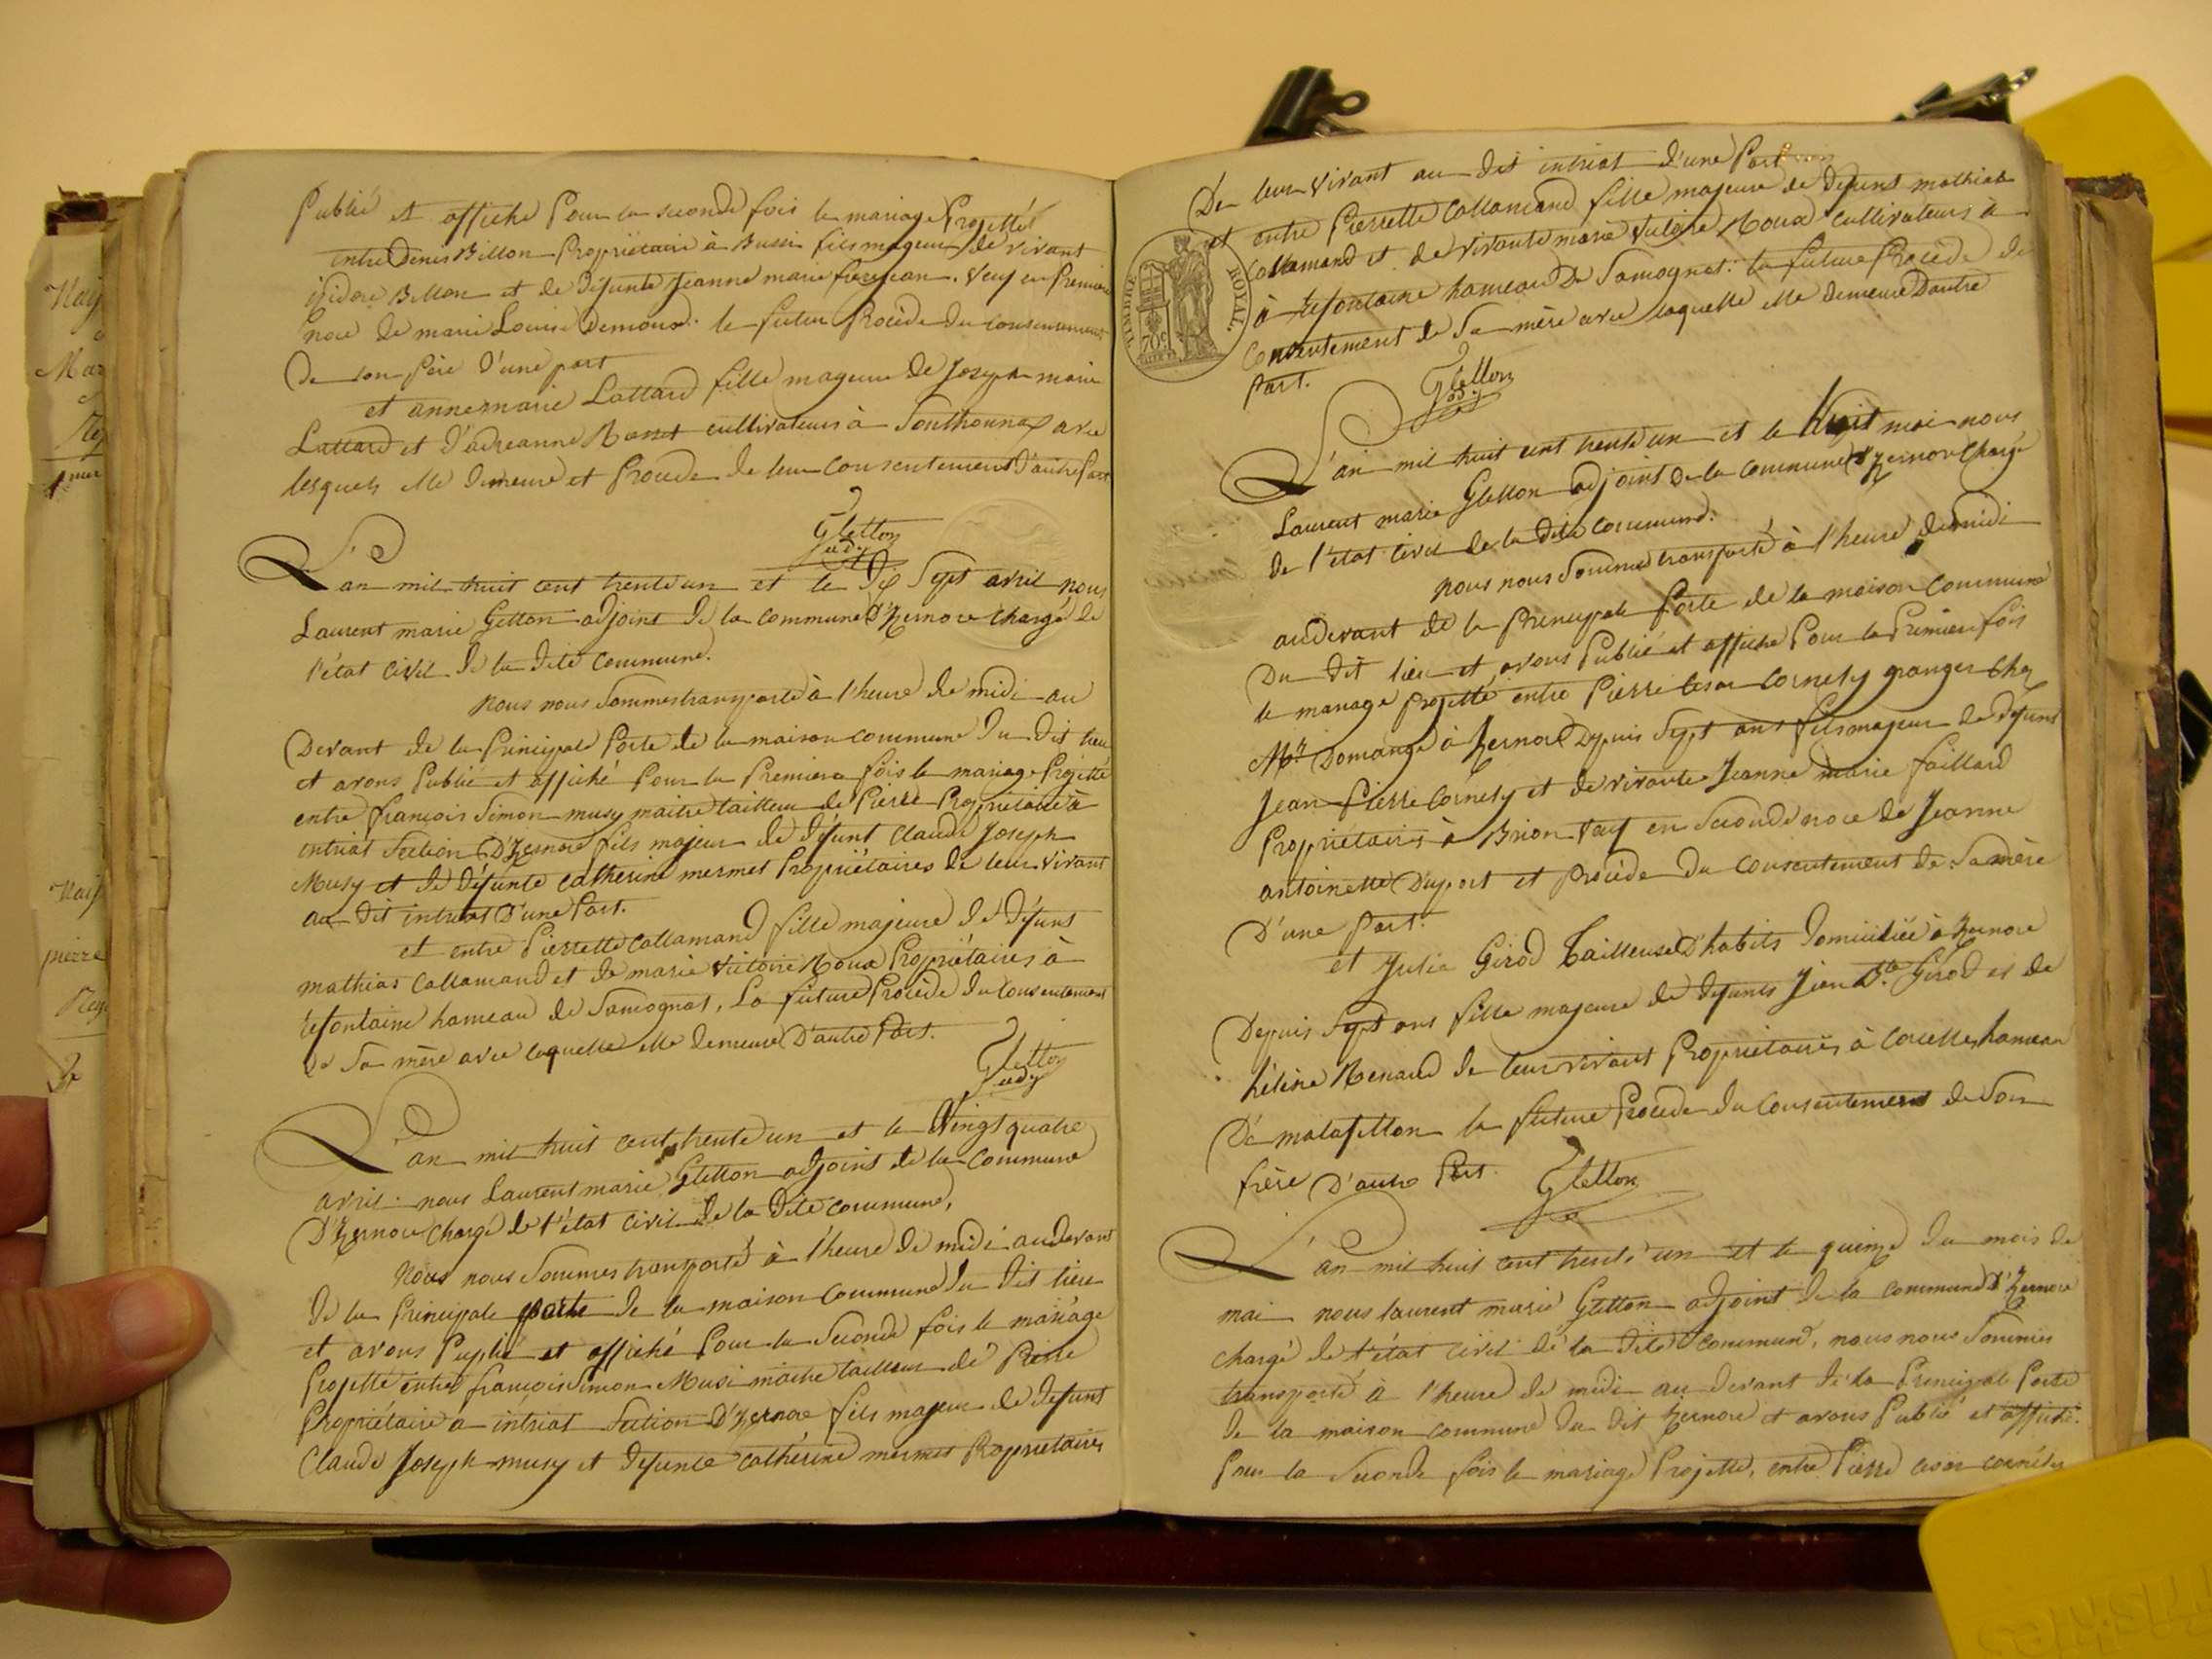 Publié et affiché Pour la seconde fois le mariage Projetté
entre Denis Billon Propriétaire à Bussi fils mageur de vivant
isidore Billon et de défunte Jeanne marie . Veuf en Premiere
noce de marie Louise Demoux. le futur Procède du consentement
De son Père d'une part
et anne marie Lattard fille mageure de Joseph marie
Lattard et d'adreanne cultivateurs à Sonthonnax avec
lesquels elle demeure et Procede de leur consentement d'autre Part
Gletton
adj
L'an mil huit cent trente un et le Dix Sept avril nous
Laurent marie Gletton adjoint de la commune d'Izernore chargé de
l'état civil de la dite commune.
nous nous Sommes transporté à l'heure de midi au
Devant de la Principale Porte de la maison commune du dit lieu
et avons Publié et affiché Pour la Premiere fois le mariage Projetté
entre françois Simon musy maitre tailleur de Pierre Propriétaire à
intriat Section D'Izernore fils majeur de défunt Claude Joseph
Musy et de défunte Catherine mermet Propriétaires de leur vivant
au dit intriat D'une Part.
et entre Pierrette Callamand fille majeure de défunt
mathias Callamand et de marie Victoire Roux Propriétaires à
lefontaine hameau de Samognat, La future Procède du consentement
de Sa mère avec laquelle elle demeure D'autre Part.
Gletton
adj
L'an mil huit cent trente un et le Vingt quatre
avril. nous Laurent marie Gletton adjoint de la commune
D'Izernore chargé de l'état civil de la dite commune,
Nous nous Sommes transporté à l'heure de midi au devant
de la Principale porte de la maison commune du dit lieu
et avons Puplié et affiché Pour la Seconde fois le mariage
Projetté entre françois Simon Musi maitre tailleur de Pierre
Propriétaire a intriat Section D'Izernore fils majeur de défunt
Claude Joseph musy et defunte cathérine mermet Propriétaires
De leur Vivant au dit intriat d'une Part
et entre Pierrette Callamand fille majeure de défunt mathias
Callamand et de vivante marie Victoire Roux cultivateurs à
à lefontaine hameau De Samognat: la future Procède de
Consentement de Sa mère avec laquelle elle demeure Dautre
Part.
Gletton
adj
TIMBRE ROYAL.
70c
L'an mil huit cent trente un et le Huit mai nous
Laurent marie Gletton adjoint de la commune d'Izernore Chargé
de l'état civil de la dite commune.
nous nous Sommes transporté à l'heure de midi
au devant de la Principale Porte de la maison commune
Du dit lieu et avons Publié et affiché Pour la Premiere fois
le mariage projetté entre Pierre Cesar Cornely granger chez
Mr Domange à Izernore Depuis Sept ans fils majeur de défunt
Jean Pierre Cornely et de vivante Jeanne marie faillard
Propriétaires à Brion Veuf en Seconde noce de Jeanne
antoinette Duport et Procède du consentement de Sa mère
D'une Part.
et Julie Girod Tailleuse D'habits domiciliée à Izernore
Depuis Sept ans fille majeure de defunts Jean Bte Girod et de
héleine Renaud de leur vivant Propriétaires à Corcelles hameau
De matafellon la future Procède du Consentement de Son
frère D'autre Part.
Gletton
L'an mil huit cent trente un et le quinze du mois de
mai nous laurent marie Gletton adjoint de la commune D'Izernore
chargé de l'état civil de la dite commune, nous nous Sommes
transporté à l'heure de midi au devant de la Principale Porte
de la maison commune du dit Izernore et avons Publié et affiché.
Pour la Seconde fois le mariage Projetté, entre Pierre cesar cornély